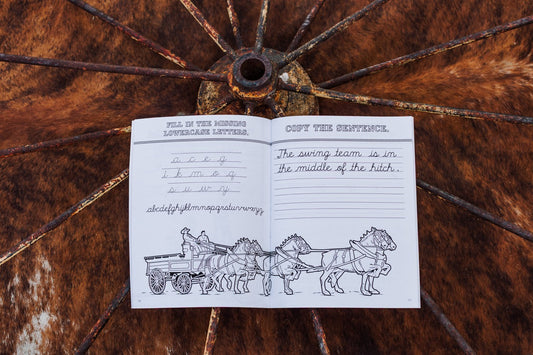 FILL IN THE MISSING
LOWERCASE LETTERS.
a c e g
i k m o q
s u w y
abcdefghijklmnopqrstuvwxyz
COPY THE SENTENCE.
The swing team is in
the middle of the hitch.